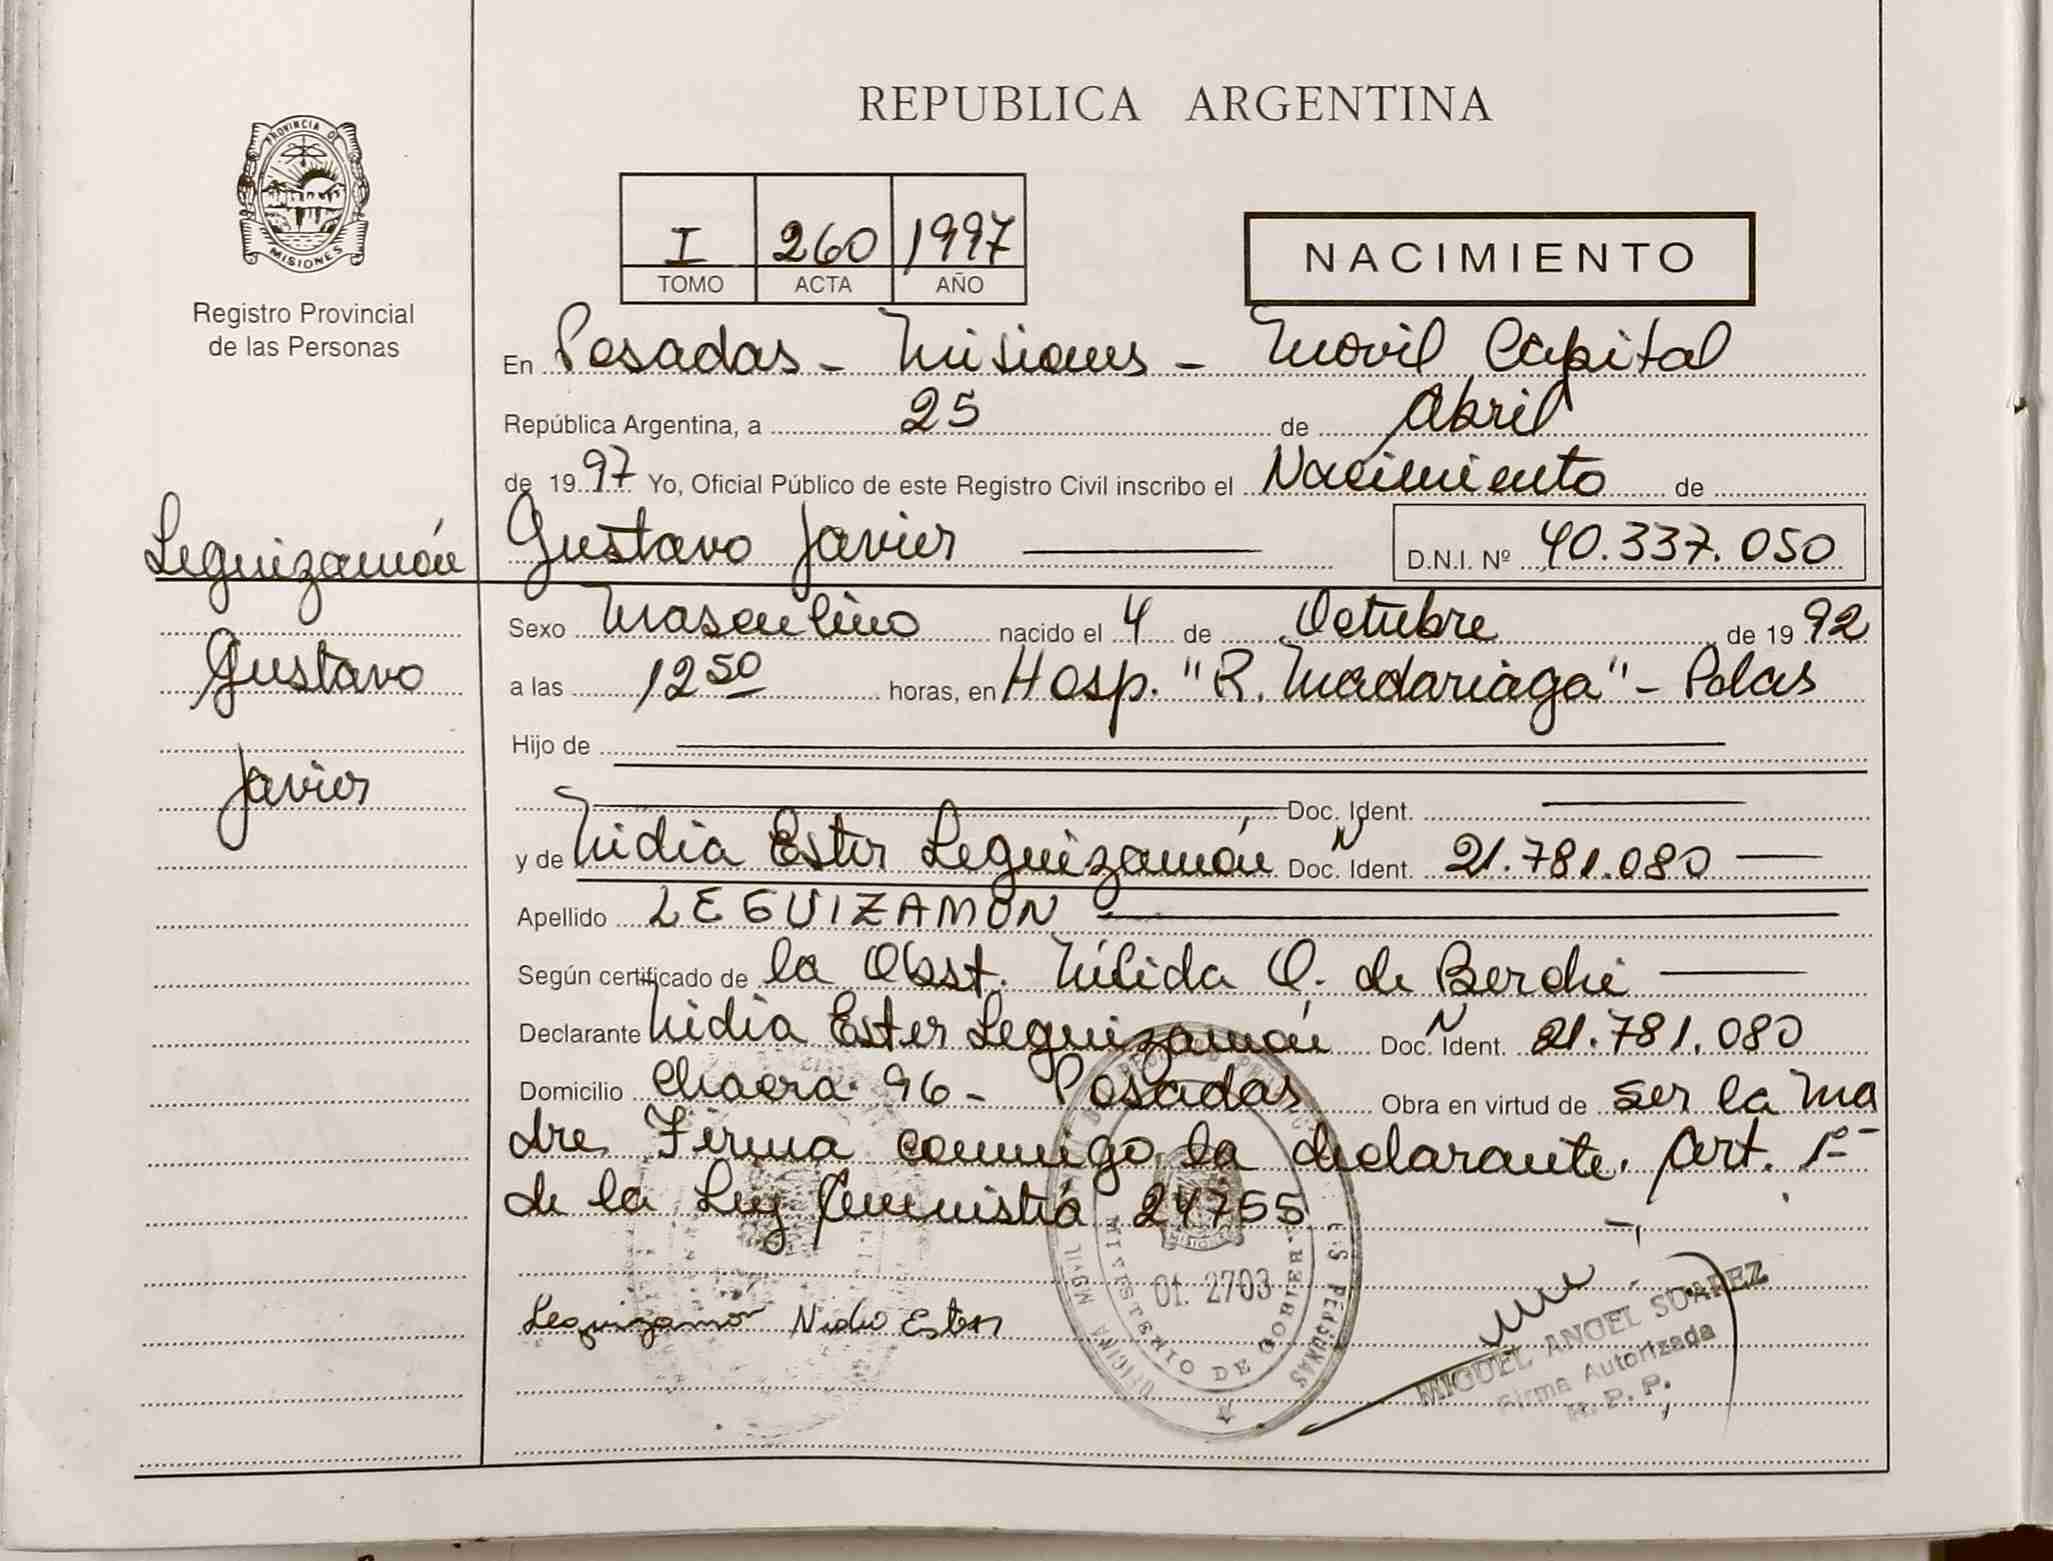 REPUBLICA ARGENTINA
PROVINCIA DE
MISIONES
Registro Provincial
de las Personas
I 260 1997
TOMO ACTA AÑO
NACIMIENTO
En Posadas - Misiones - Movil Capital
República Argentina, a 25 de Abril
de 1997 Yo, Oficial Público de este Registro Civil inscribo el Nacimiento de
Gustavo Javier D.N.I. Nº 40.337.050
Leguizamón
Gustavo
Javier
Sexo Masculino nacido el 4 de Octubre de 1992
a las 12 50 horas, en Hosp. "R. Madariaga" - Pdas
Hijo de
Doc. Ident.
y de Nidia Ester Leguizamón Doc. N Ident. 21.781.080
Apellido LEGUIZAMON
Según certificado de la Obst. Nélida O. de Berchi
Declarante Nidia Ester Leguizamón Doc. N Ident. 21.781.080
Domicilio Chacra 96 - Posadas Obra en virtud de ser la ma
dre. Firma conmigo la declarante. Art. 1º
de la Ley Amnistía 24755
Leguizamon Nidia Ester
01. 2703
MINISTERIO DE GOBIERNO
MIGUEL ANGEL SUAREZ
Firma Autorizada
R. P. P.